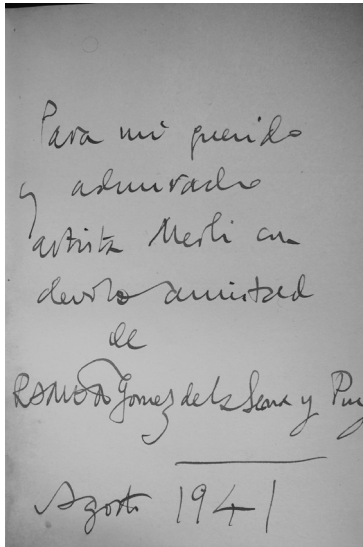 Para mi querido
y admirado
artista Merli con
devota amistad
de
RAMON Gomez de la Serna y Puig
Agosto 1941